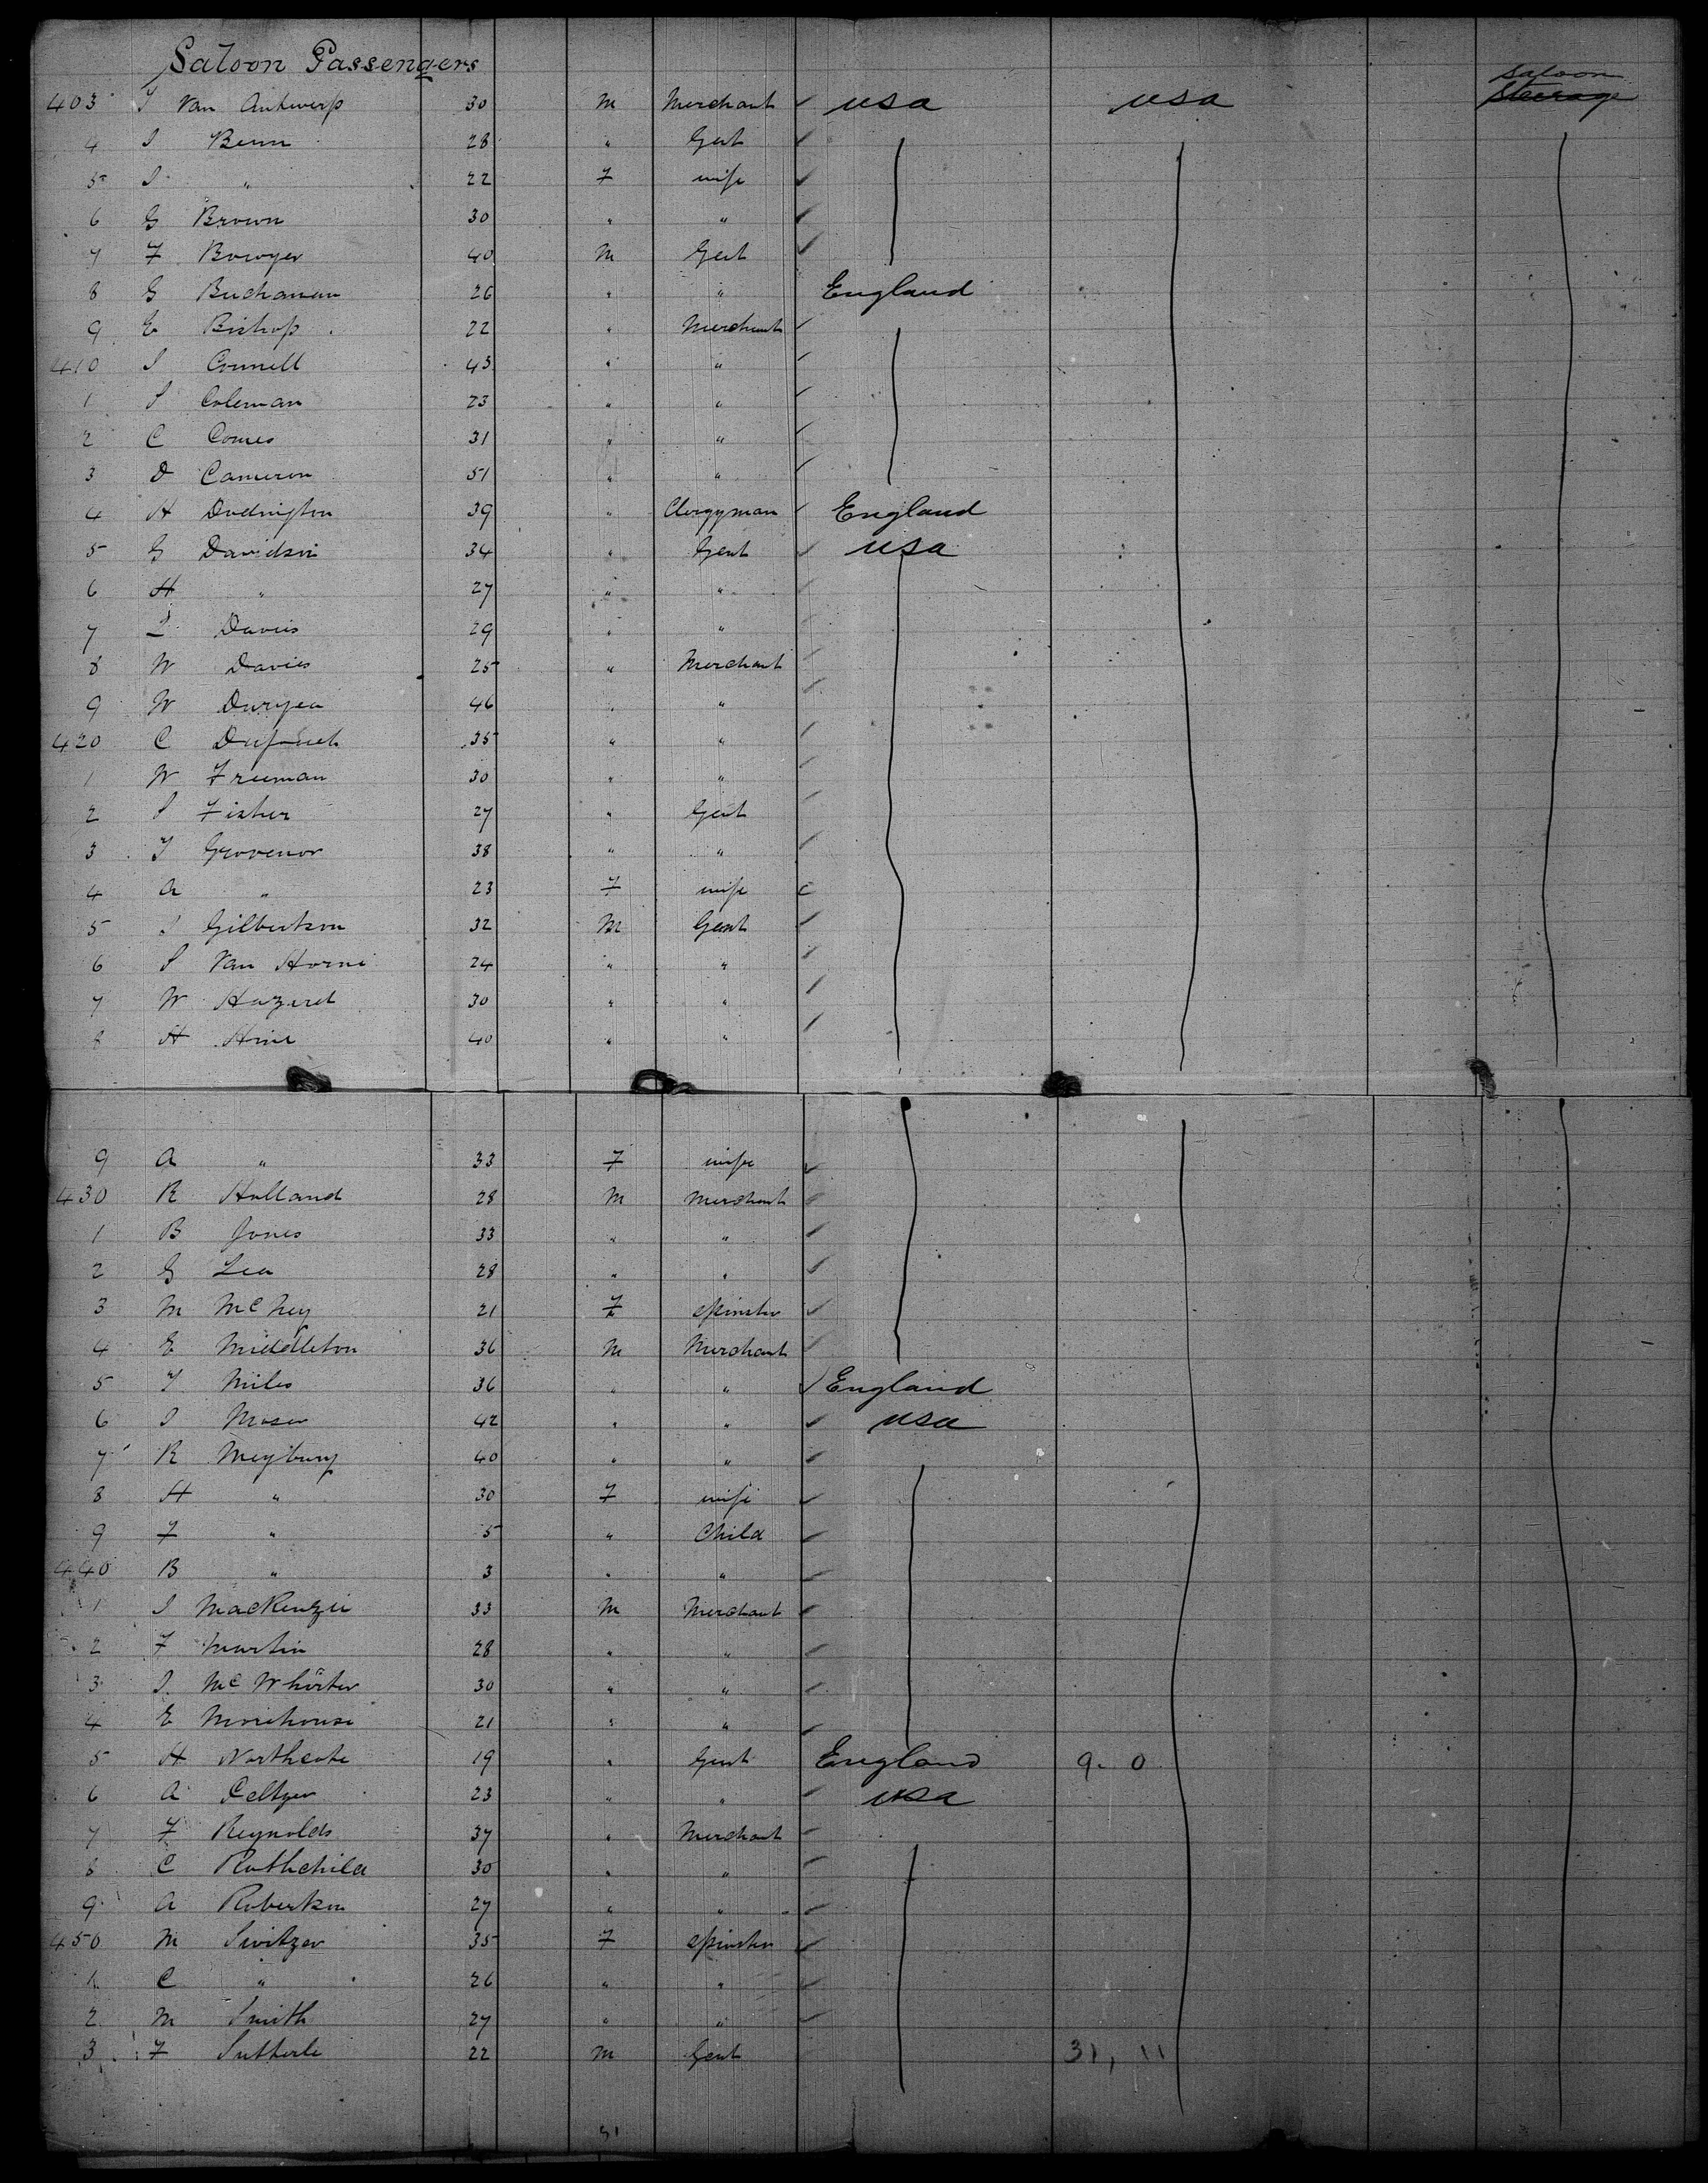 Saloon Passengers
403 J Van Antwerp 30 M Merchant USA USA Saloon Steerage
4 J Benn 28 " Gent
5 J " 22 F wife
6 G Brown 30 " "
7 F Bowyer 40 M Gent
8 G Buchanan 26 " " England
9 E Bishop 22 " Merchant
410 J Connell 45 " "
1 S Coleman 23 " "
2 C Comes 31 " "
3 D Cameron 51 " "
4 H Dodington 39 " Clergyman England
5 G Davidson 34 " Gent USA
6 H " 27 " "
7 Davies 29 " "
8 W Davies 25 " Merchant
9 W Duryea 46 " "
420 C 35 " "
1 W Freeman 30 " "
2 S Fisher 27 " Gent
3 T Grovenor 38 " "
4 A " 23 F wife
5 J Gilbertson 32 M Gent
6 S Van Horne 24 " "
7 W Hazard 30 " "
8 H Hine 40 " "
9 A " 33 F wife
430 R Holland 28 M Merchant
1 B Jones 33 " "
2 G Lea 28 " "
3 M 21 F Spinster
4 E Middleton 36 M Merchant
5 T Miles 36 " " England
6 J Moser 42 " " USA
7 R Meyburg 40 " "
8 H " 30 F wife
9 F " 5 " Child
440 B " 3 " "
1 J MacKenzie 33 M Merchant
2 F Martin 28 " "
3 J McWhorter 30 " "
4 E Morehouse 21 " "
5 H Northcote 19 " Gent England 9. 0
6 A 23 " " USA
7 F Reynolds 37 " Merchant
8 C Rothchild 30 " "
9 A Robertson 27 " "
450 M Switzer 35 F Spinster
1 C " 26 " "
2 M Smith 27 " "
3 F Sutterle 22 M Gent 31, 11
51